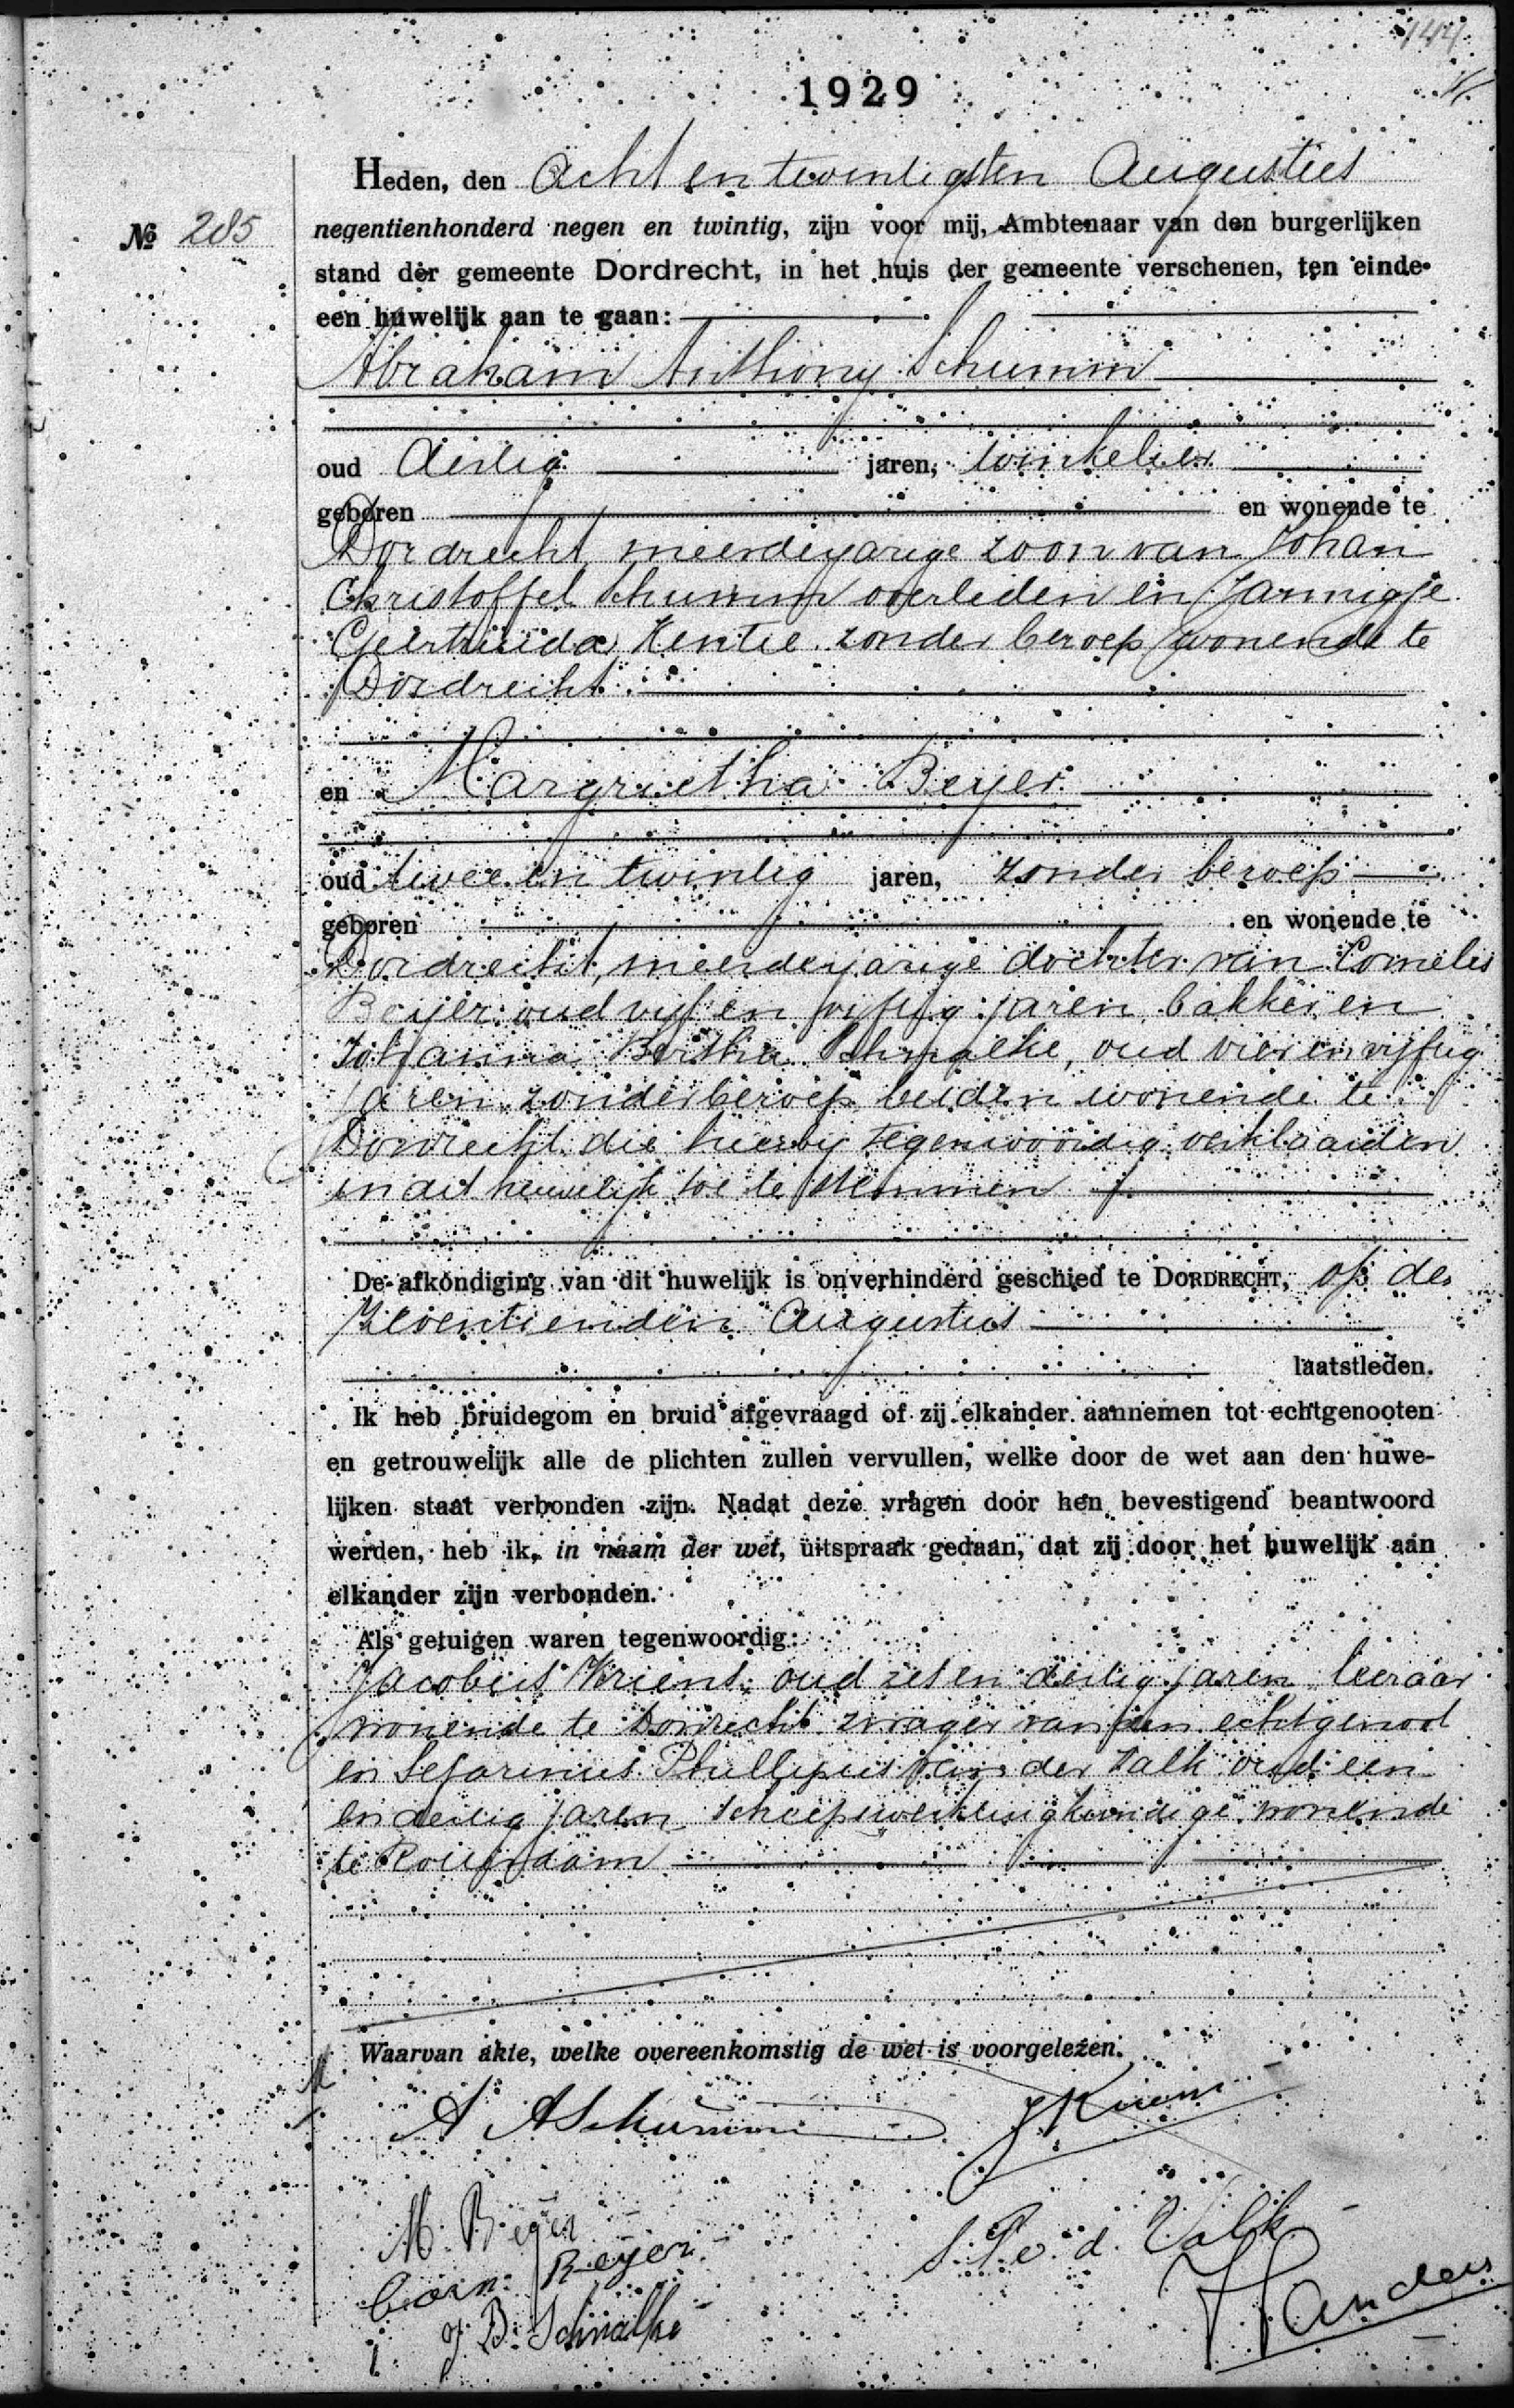 144
1929
Heden, den Acht en twintigsten Augustus
№ 285
negentienhonderd negen en twintig, zijn voor mij, Ambtenaar van den burgerlijken
stand der gemeente Dordrecht, in het huis der gemeente verschenen, ten einde
een huwelijk aan te gaan:
Abraham Anthony Schumm
oud dertig jaren, winkelier
geboren en wonende te
Dordrecht, meerderjarige zoon van Johan
Christoffel Schumm overleden en Jannigje
Geertruida Kentie zonder beroep wonende te
Dordrecht.
en Margrietha Beyer
oud twee en twintig jaren, zonder beroep
geboren en wonende te
Dordrecht, meerderjarige dochter van Cornelis
Beyer oud vijf en vijftig jaren, bakker en
Johanna Bertha Schmalke, oud vier en vijftig
jaren, zonder beroep, beiden wonende te
Dordrecht die hierbij tegenwoordig verklaarden
in dit huwelijk toe te stemmen
De afkondiging van dit huwelijk is onverhinderd geschied te DORDRECHT, op den
zeventienden Augustus
laatstleden.
Ik heb bruidegom en bruid afgevraagd of zij elkander aannemen tot echtgenooten
en getrouwelijk alle de plichten zullen vervullen, welke door de wet aan den huwe-
lijken staat verbonden zijn. Nadat deze vragen door hen bevestigend beantwoord
werden, heb ik, in naam der wet, uitspraak gedaan, dat zij door het huwelijk aan
elkander zijn verbonden.
Als getuigen waren tegenwoordig:
Jacobus Kriens, oud zes en dertig jaren, leeraar
wonende te Dordrecht zwager van den echtgenoot
en Sefarinus Phillipus van der Valk oud een
en dertig jaren scheepswerktuigkundige wonende
te Rotterdam
Waarvan akte, welke overeenkomstig de wet is voorgelezen.
A A Schumm
J Kriens
M. Beyer
Corn. Beyer
S. P. v. d. Valk
J. B. Schmalke